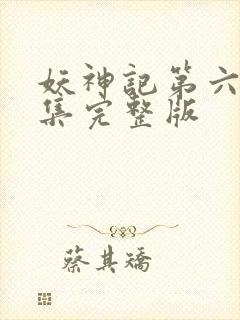 妖神記第六
集完整版
蔡其矯